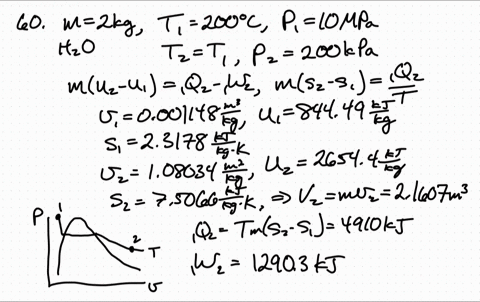 60. m=2kg, T₁=200°C, P₁=10MPa
H₂O T₂=T₁, P₂=200kPa
m(u₂-u₁)=₁Q₂-₁W₂, m(s₂-s₁)=₁Q₂/T
v₁=0.001148 m³/kg, u₁=844.49 kJ/kg
s₁=2.3178 kJ/kg·K
v₂=1.08034 m³/kg, u₂=2654.4 kJ/kg
s₂=7.5066 kJ/kg·K, ⇒ V₂=mv₂=2.1607m³
₁Q₂=Tm(s₂-s₁)=4910kJ
₁W₂=1290.3kJ
P 1 2 T
v